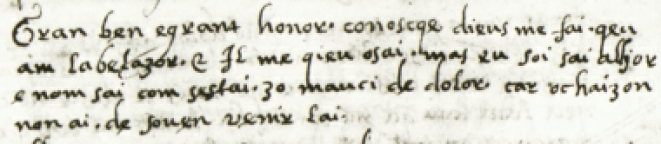 Gran ben egrant honor. conoscqe dieus me fai. qeu
am labelazor. & Il me qieu osai. mas eu soi sai alhor
e nom sai com sestai. zo mauci de dolor. car ochaizon
non ai. de souen venir lai.